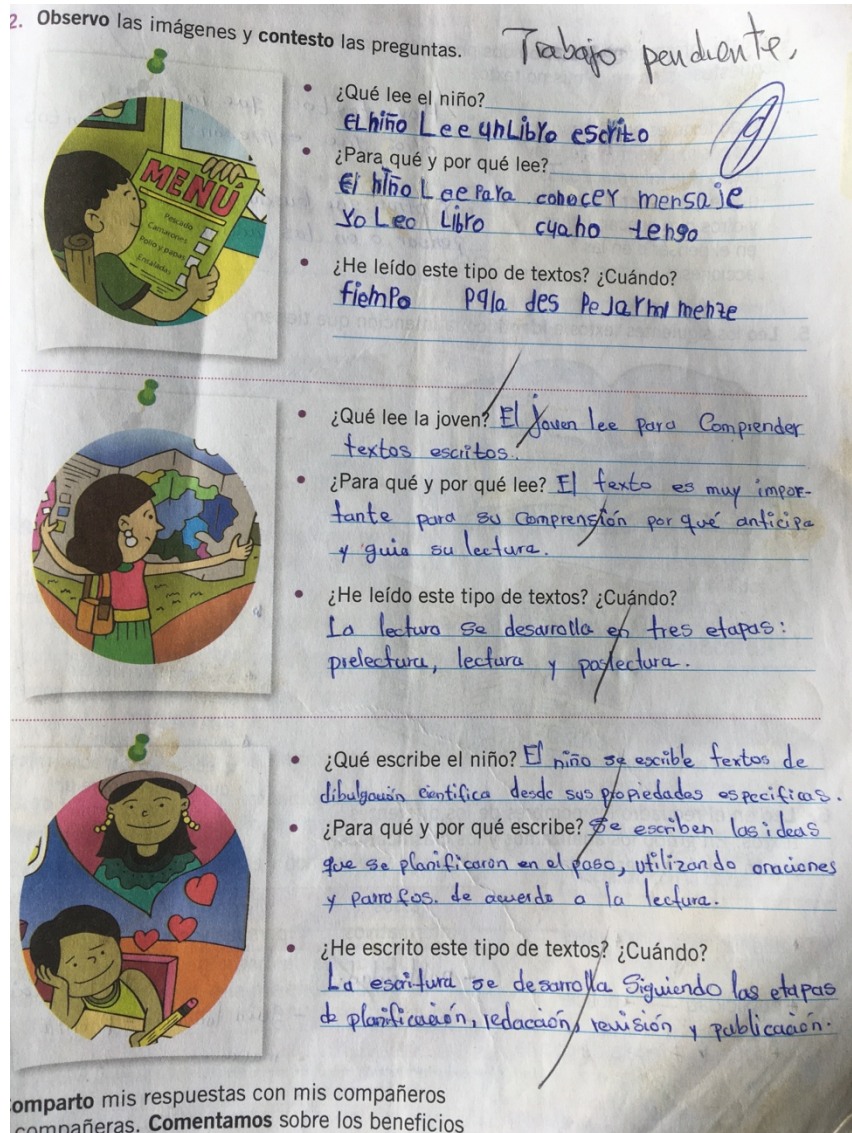 2. Observo las imágenes y contesto las preguntas.
Trabajo pendiente,
MENÚ
Pescado
Camarones
Pollo y papas
Ensaladas
¿Qué lee el niño?
El niño Lee un Libro escrito
¿Para qué y por qué lee?
El niño Lee Para conocer mensaje
yo Leo Libro cuaho tengo
¿He leído este tipo de textos? ¿Cuándo?
fiemPo para des Pejarmi menze
¿Qué lee la joven? El joven lee para Comprender
textos escritos.
¿Para qué y por qué lee? El texto es muy impor-
tante para su comprensión por qué anticipa
y guia su lectura.
¿He leído este tipo de textos? ¿Cuándo?
La lectura se desarrolla en tres etapas:
prelectura, lectura y poslectura.
¿Qué escribe el niño? El niño se escrible textos de
dibulgouón cientifica desde sus propiedades especificas.
¿Para qué y por qué escribe? Se escriben las ideas
que se planificaron en el paso, utilizando oraciones
y parrofos. de acuerdo a la lectura.
¿He escrito este tipo de textos? ¿Cuándo?
La escritura se desarrolla Siguiendo las etapas
de planificación, redacción, revisión y publicación.
omparto mis respuestas con mis compañeros
compañeras. Comentamos sobre los beneficios